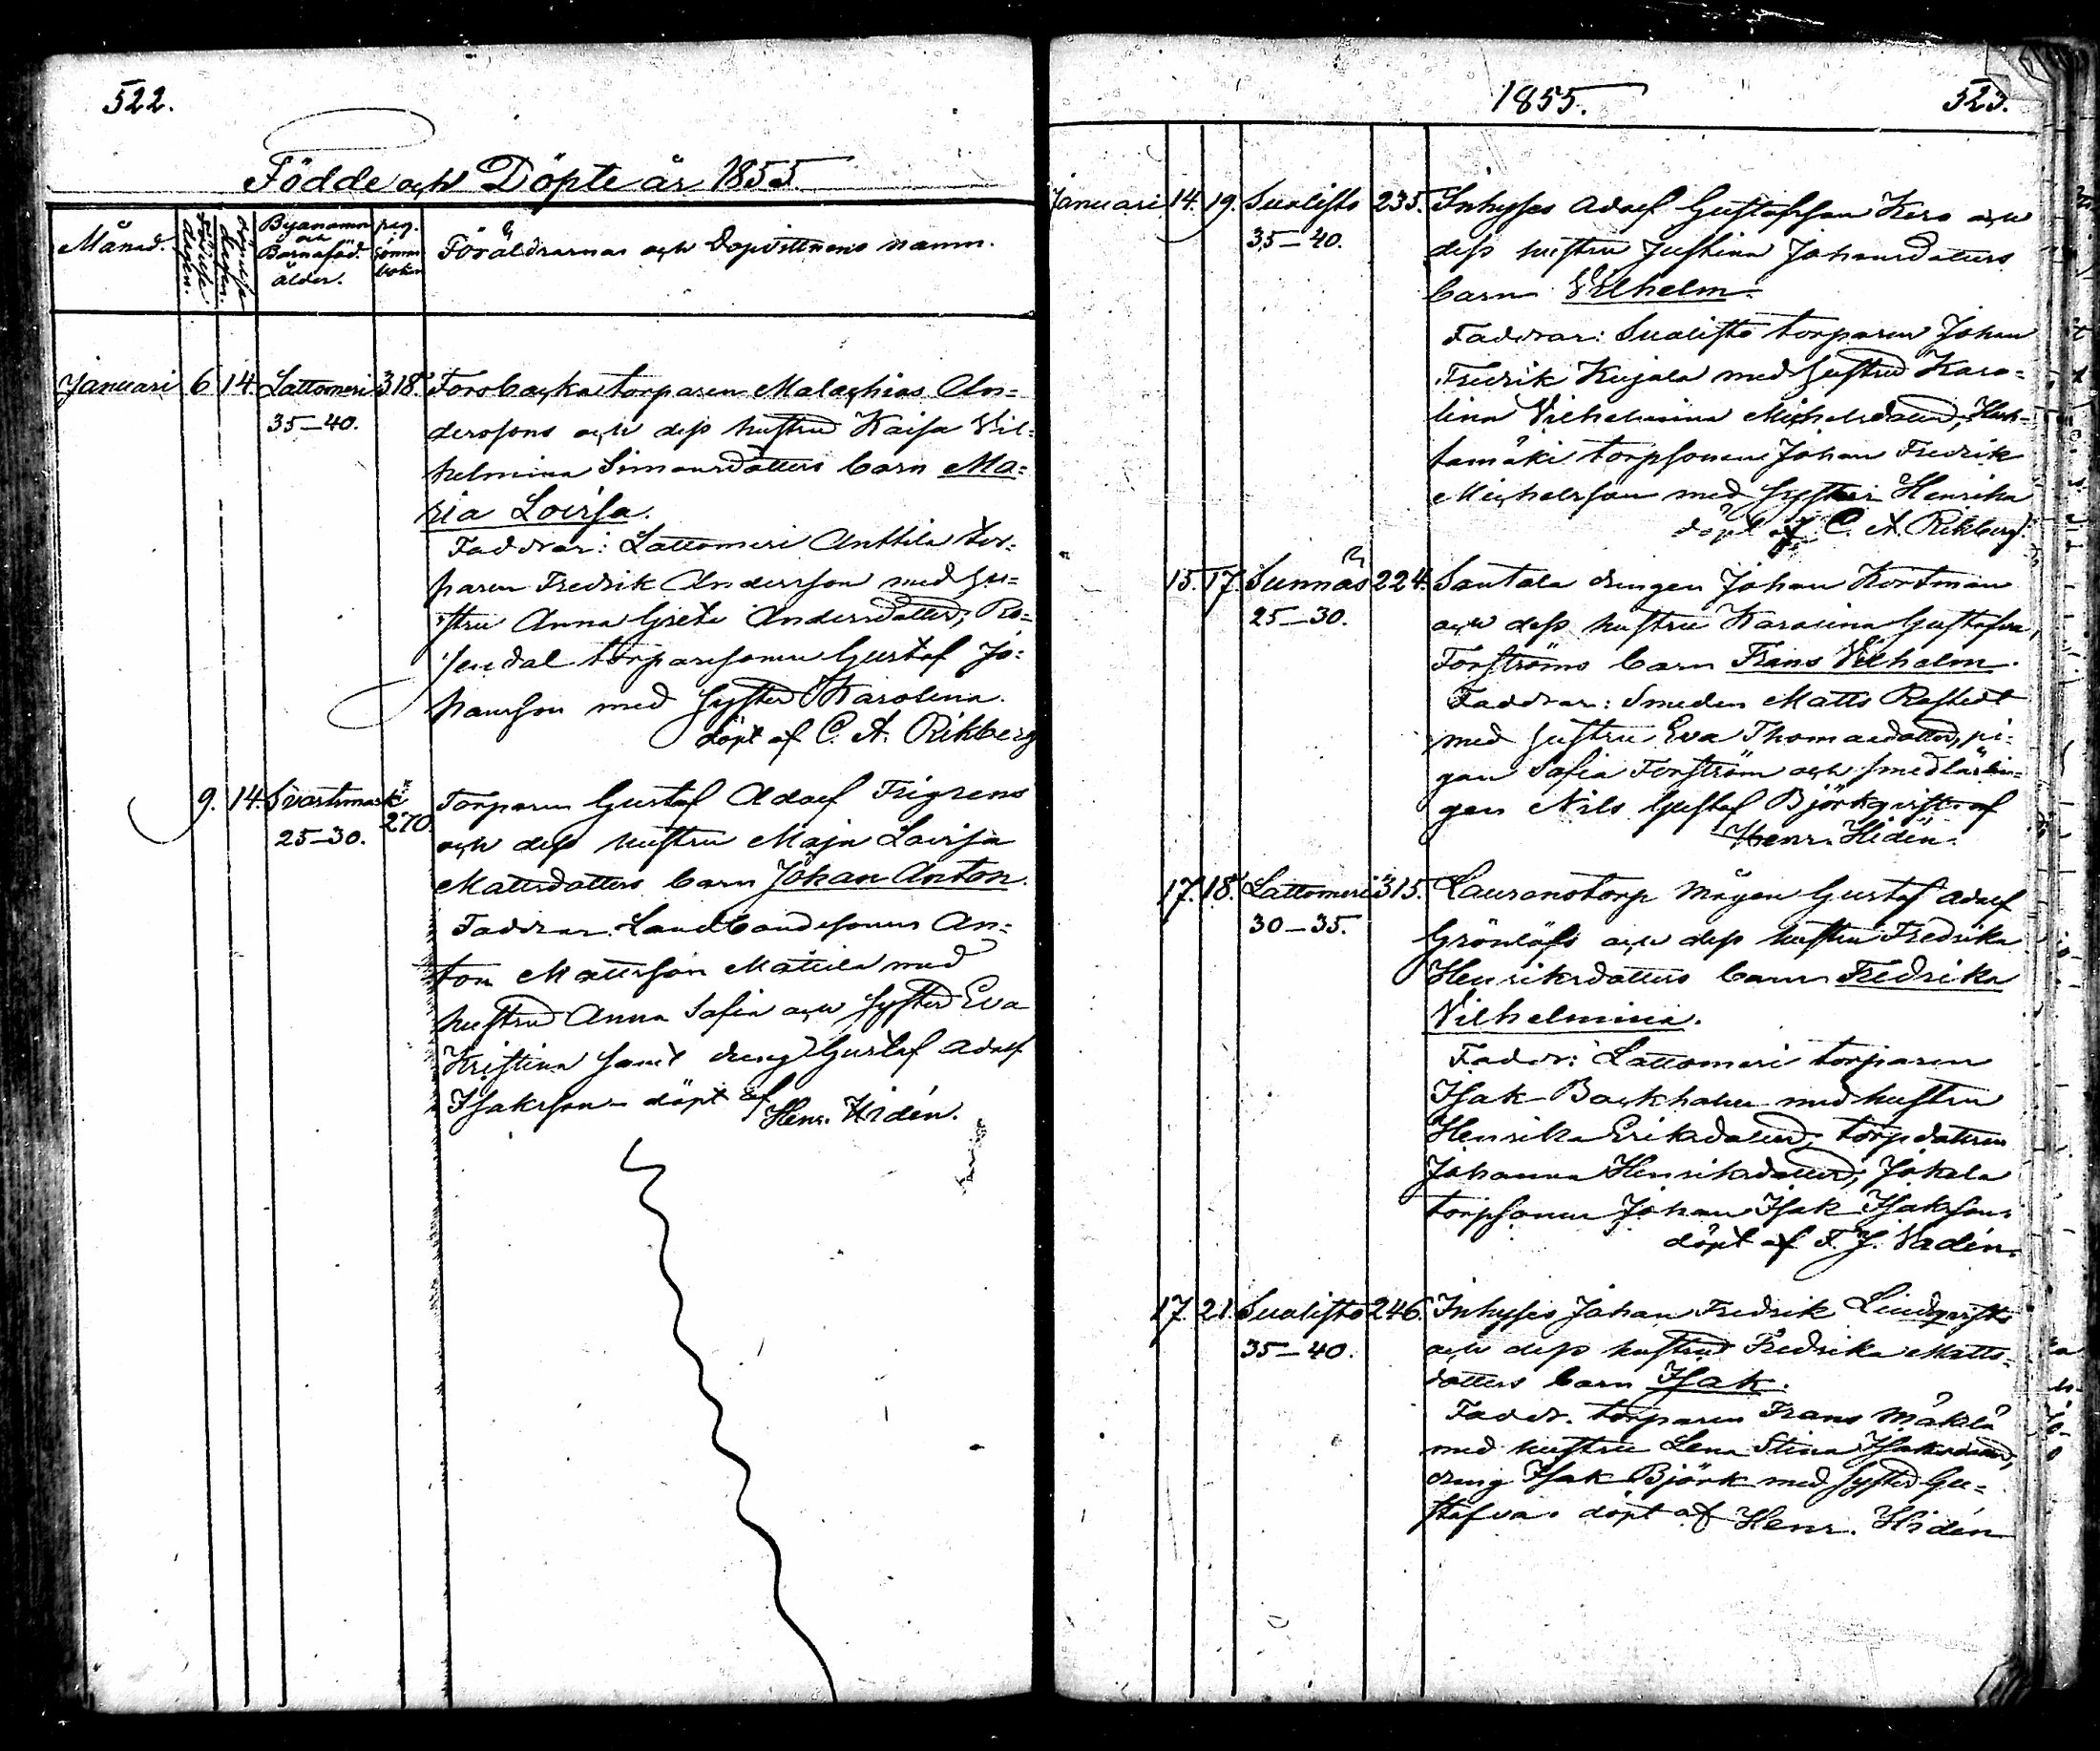 522.
Födde och Döpte år 1855
Månad. födelse dagen. Byanamn och Barnaföd. ålder. Föräldrarnas och Dopvittnens namn.
Januari 6 14. Lattomeri 318. Torsbacka torparen Malachias An=
35–40. derssons och dess hustru Kaisa Vil=
helmina Simonsdotters barn Ma=
ria Lovisa.
Faddrar: Lattomeri Anttila tor=
paren Fredrik Andersson med hu=
stru Anna Greta Andersdotter, Ro=
sendal torparesonen Gustaf Jo=
hansson med syster Karolina.
döpt af C. A. Rikberg
9. 14. Svartsmark 270. Torparen Gustaf Adolf Frigrens
25–30. och dess hustru Maja Lovisa
Mattsdotters barn Johan Anton.
Faddrar. Landbondesonen An=
ton Mattsson Mattila med
hustru Anna Sofia och syster Eva
Kristina samt dreng Gustaf Adolf
Isaksson – döpt af
Henr. Hidén.
1855. 523.
Januari 14. 19. Sualisto 235. Inhyses Adolf Gustafsson Kers och
35–40. dess hustru Justina Johansdotters
barn Vilhelm.
Faddrar: Sualisto torparen Johan
Fredrik Kujala med hustru Karo=
lina Vilhelmina Michelsdotter,
tamäki torpsonen Johan Fredrik
Michelsson med syster Henrika
döpt af C. A. Rikberg.
15. 17. Sunnäs 224. Santala drengen Johan Kortman
25–30. och dess hustru Karolina Gustafva
Forströms barn Frans Vilhelm.
Faddrar: Smeden Matts Rostedt
med hustru Eva Thomasdotter, pi=
gan Sofia Forström och smedlärlin=
gen Nils Gustaf Björkqvist. af
Henr. Hidén.
17. 18. Lattomeri 315. Lauranstorp mågen Gustaf Adolf
30–35. Grönlöfs och dess hustru Fredrika
Henriksdotters barn Fredrika
Vilhelmina.
Faddr: Lattomeri torparen
Isak Backholm med hustru
Henrika Eriksdotter, torpdottern
Johanna Henriksdotter, Jokela
torpsonen Johan Isak Isaksson.
döpt af F. J. Vadén.
17. 21. Sualisto 246. Inhyses Johan Fredrik Lindqvists
35–40. och dess hustru Fredrika Matts=
dotters barn Isak.
Faddr. torparen Frans Mäkelä
med hustru Lena Stina Isaksdotter,
dreng Isak Björk med syster Gu=
stafva. döpt af Henr. Hidén